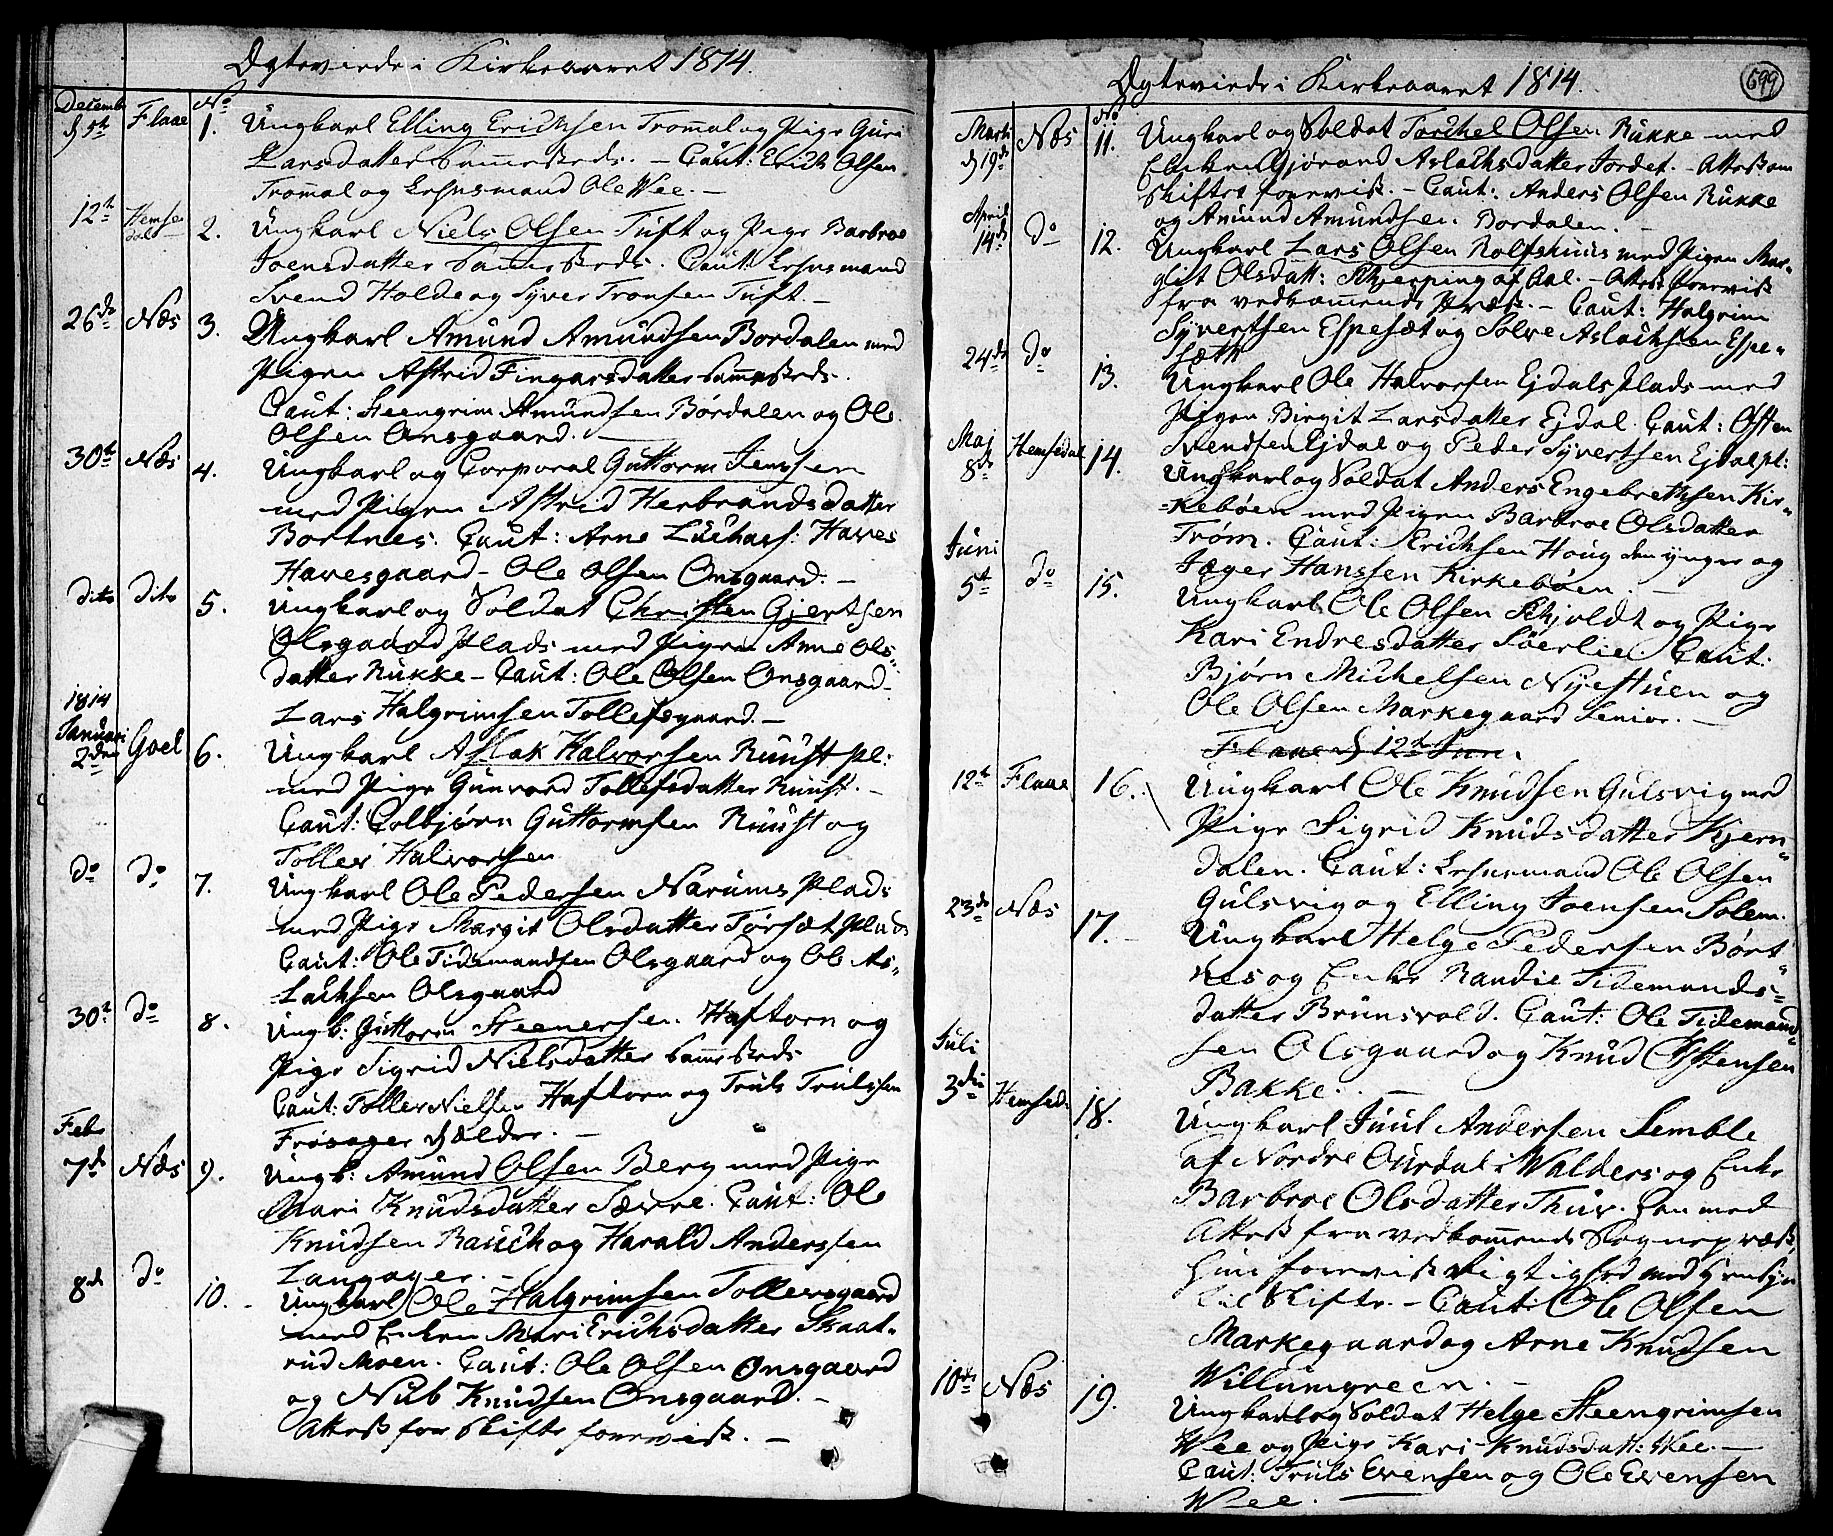 Ægteviede i Kirkeaaret 1814.
Decembr
d 5te Flaae No 1. Ungkarl Elling Erichsen Trommal og Pige Guri
Larsdatter sammesteds. - Caut: Erich Olsen
Trommal og Lehnsmand Ole Wee. -
12te Hemse
dal 2. Ungkarl Niels Olsen Tuft og Pige Barbroe
Joensdatter sammesteds. Caut: Lehnsmand
Svend Holde og Syver Tronsen Tuft. -
26de Næs 3. Ungkarl Amund Amundsen Bordalen med
Pigen Astrid Fingarsdatter sammesteds.
Caut: Steengrim Amundsen Børdalen og Ole
Olsen Onsgaard. -
30te Næs 4. Ungkarl og Corporal Guttorm Jenssen
med Pigen Astrid Herbrandsdatter
Bortnes. Caut: Arne Haves
Havesgaard - Ole Olsen Onsgaard. -
dito dito 5. Ungkarl og Soldat Christen Gjertsen
Olsgaard Plads med Pigen Anne Ols„
datter Rukke - Caut: Ole Olsen Onsgaard -
Lars Halgrimsen Tollefsgaard. -
1814
Januari
2den Goel 6. Ungkarl Aslak Halvorsen Ruust pl:
med Pige Gunvord Tollefsdatter Ruust. -
Caut: Colbjørn Guttormsen Ruust og
Tollev Halvorsen
do do 7. Ungkarl Ole Pedersen Narums Plads
med Pige Margit Olsdatter Torset Plads
Caut: Ole Tidemandsen Olsgaard og Ole As„
-lachsen Olsgaard
30te do 8. Ungk: Guttorm Steenersen. Haftorn og
Pige Sigrid Nielsdatter sammesteds
Caut: Tollev Nielsen Haftorn og Truls Trulssen
Frøsager d ældre. -
Febr
7de Næs 9. Ungk: Amund Olsen Berg med Pige
Mari Knudsdatter Sævre. Caut: Ole
Knudsen Rauch og Harald Anderssen
Langager. -
8de do 10. Ungkarl Ole Halgrimsen Tollevsgaard
med Enken Mari Erichsdatter Skaat„
rud Moen. Caut: Ole Olsen Onsgaard
og Nub Knudsen Onsgaard. -
Attest for Skifte foreviist. -
Ægteviede i Kirkeaaret 1814.
699
Marti
d 19de Næs No 11. Ungkarl og Soldat Torchel Olsen Rukke med
Enken Gjørand Aslachsdatter Jordet. - Attest om
Skiftet foreviist. - Caut: Anders Olsen Rukke
og Amund Amundsen Bordalen. -
April
14de do 12. Ungkarl Lars Olsen Rolfshuus med Pigen Mar„
git Olsdatt: Skjerping af Aal. - Attest foreviist
fra vedkommende Præst. - Caut: Halgrim
Syvertsen Espesæt og Solve Aslachsen Espe„
sæth
24de do 13. Ungkarl Ole Halvorsen Ejdals Plads med
Pigen Birgit Larsdatter Ejdal. Caut: Østen
Svendsen Ejdal og Peder Syvertsen Ejdal pl:
Maj
8de Hemsedal 14. Ungkarl og Soldat Anders Engebrethsen Kir„
-kebøen med Pigen Barbroe Olsdatter
Trøm. Caut: Erichsen Houg den yngre og
Jæger Hanssen Kirkebøen. -
Juni
5te do 15. Ungkarl Ole Olsen Skjoldt og Pige
Kari Endresdatter Søerlie. Caut:
Bjørn Michelsen Nyestuen og
Ole Olsen Markegaard Senior. -
Flaae d 12te Jun.
12te Flaae 16. Ungkarl Ole Knudsen Gulsvig med
Pige Sigrid Knudsdatter Kjern„
dalen. Caut: Lehnsmand Ole Olsen
Gulsvig og Elling Joensen Solem.
23de Næs 17. - Ungkarl Helge Pedersen Børt„
nes og Enke Randie Tidemands„
datter Brunsvold. Caut: Ole Tidemand„
sen Olsgaard og Knud Østensen
Bakke. -
Juli
3die Hemsed: 18. Ungkarl Juul Andersen Semble
af Nordre Ourdal i Walders og Enke
Barbroe Olsdatter Thuv. Han med
Attest fra vedkommende Sognepræst,
hun foreviist Rigtighed med Hensyn
til Skifte. - Caut: Ole Olsen
Markegaard og Arne Knudsen
Willumgreen. -
10de Næs 19. Ungkarl og Soldat Helge Steengrimsen
Wee og Pige Kari Knudsdatt: Wee. -
Caut: Truls Evensen og Ole Evensen
Wee. -